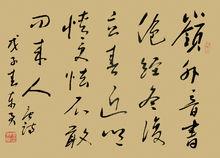 嶺外音書
絕經冬復
立春近鄉
情更怯不敢
問來人 唐詩
戊子